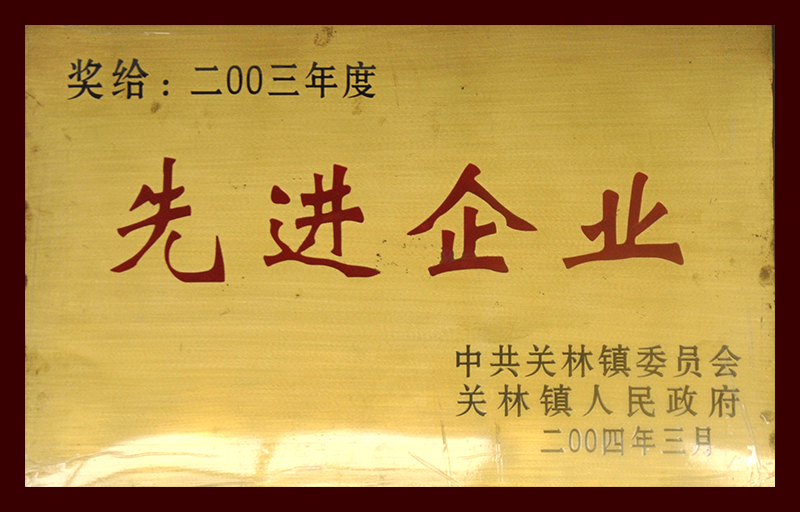 奖给：二00三年度
先进企业
中共关林镇委员会
关林镇人民政府
二00四年三月